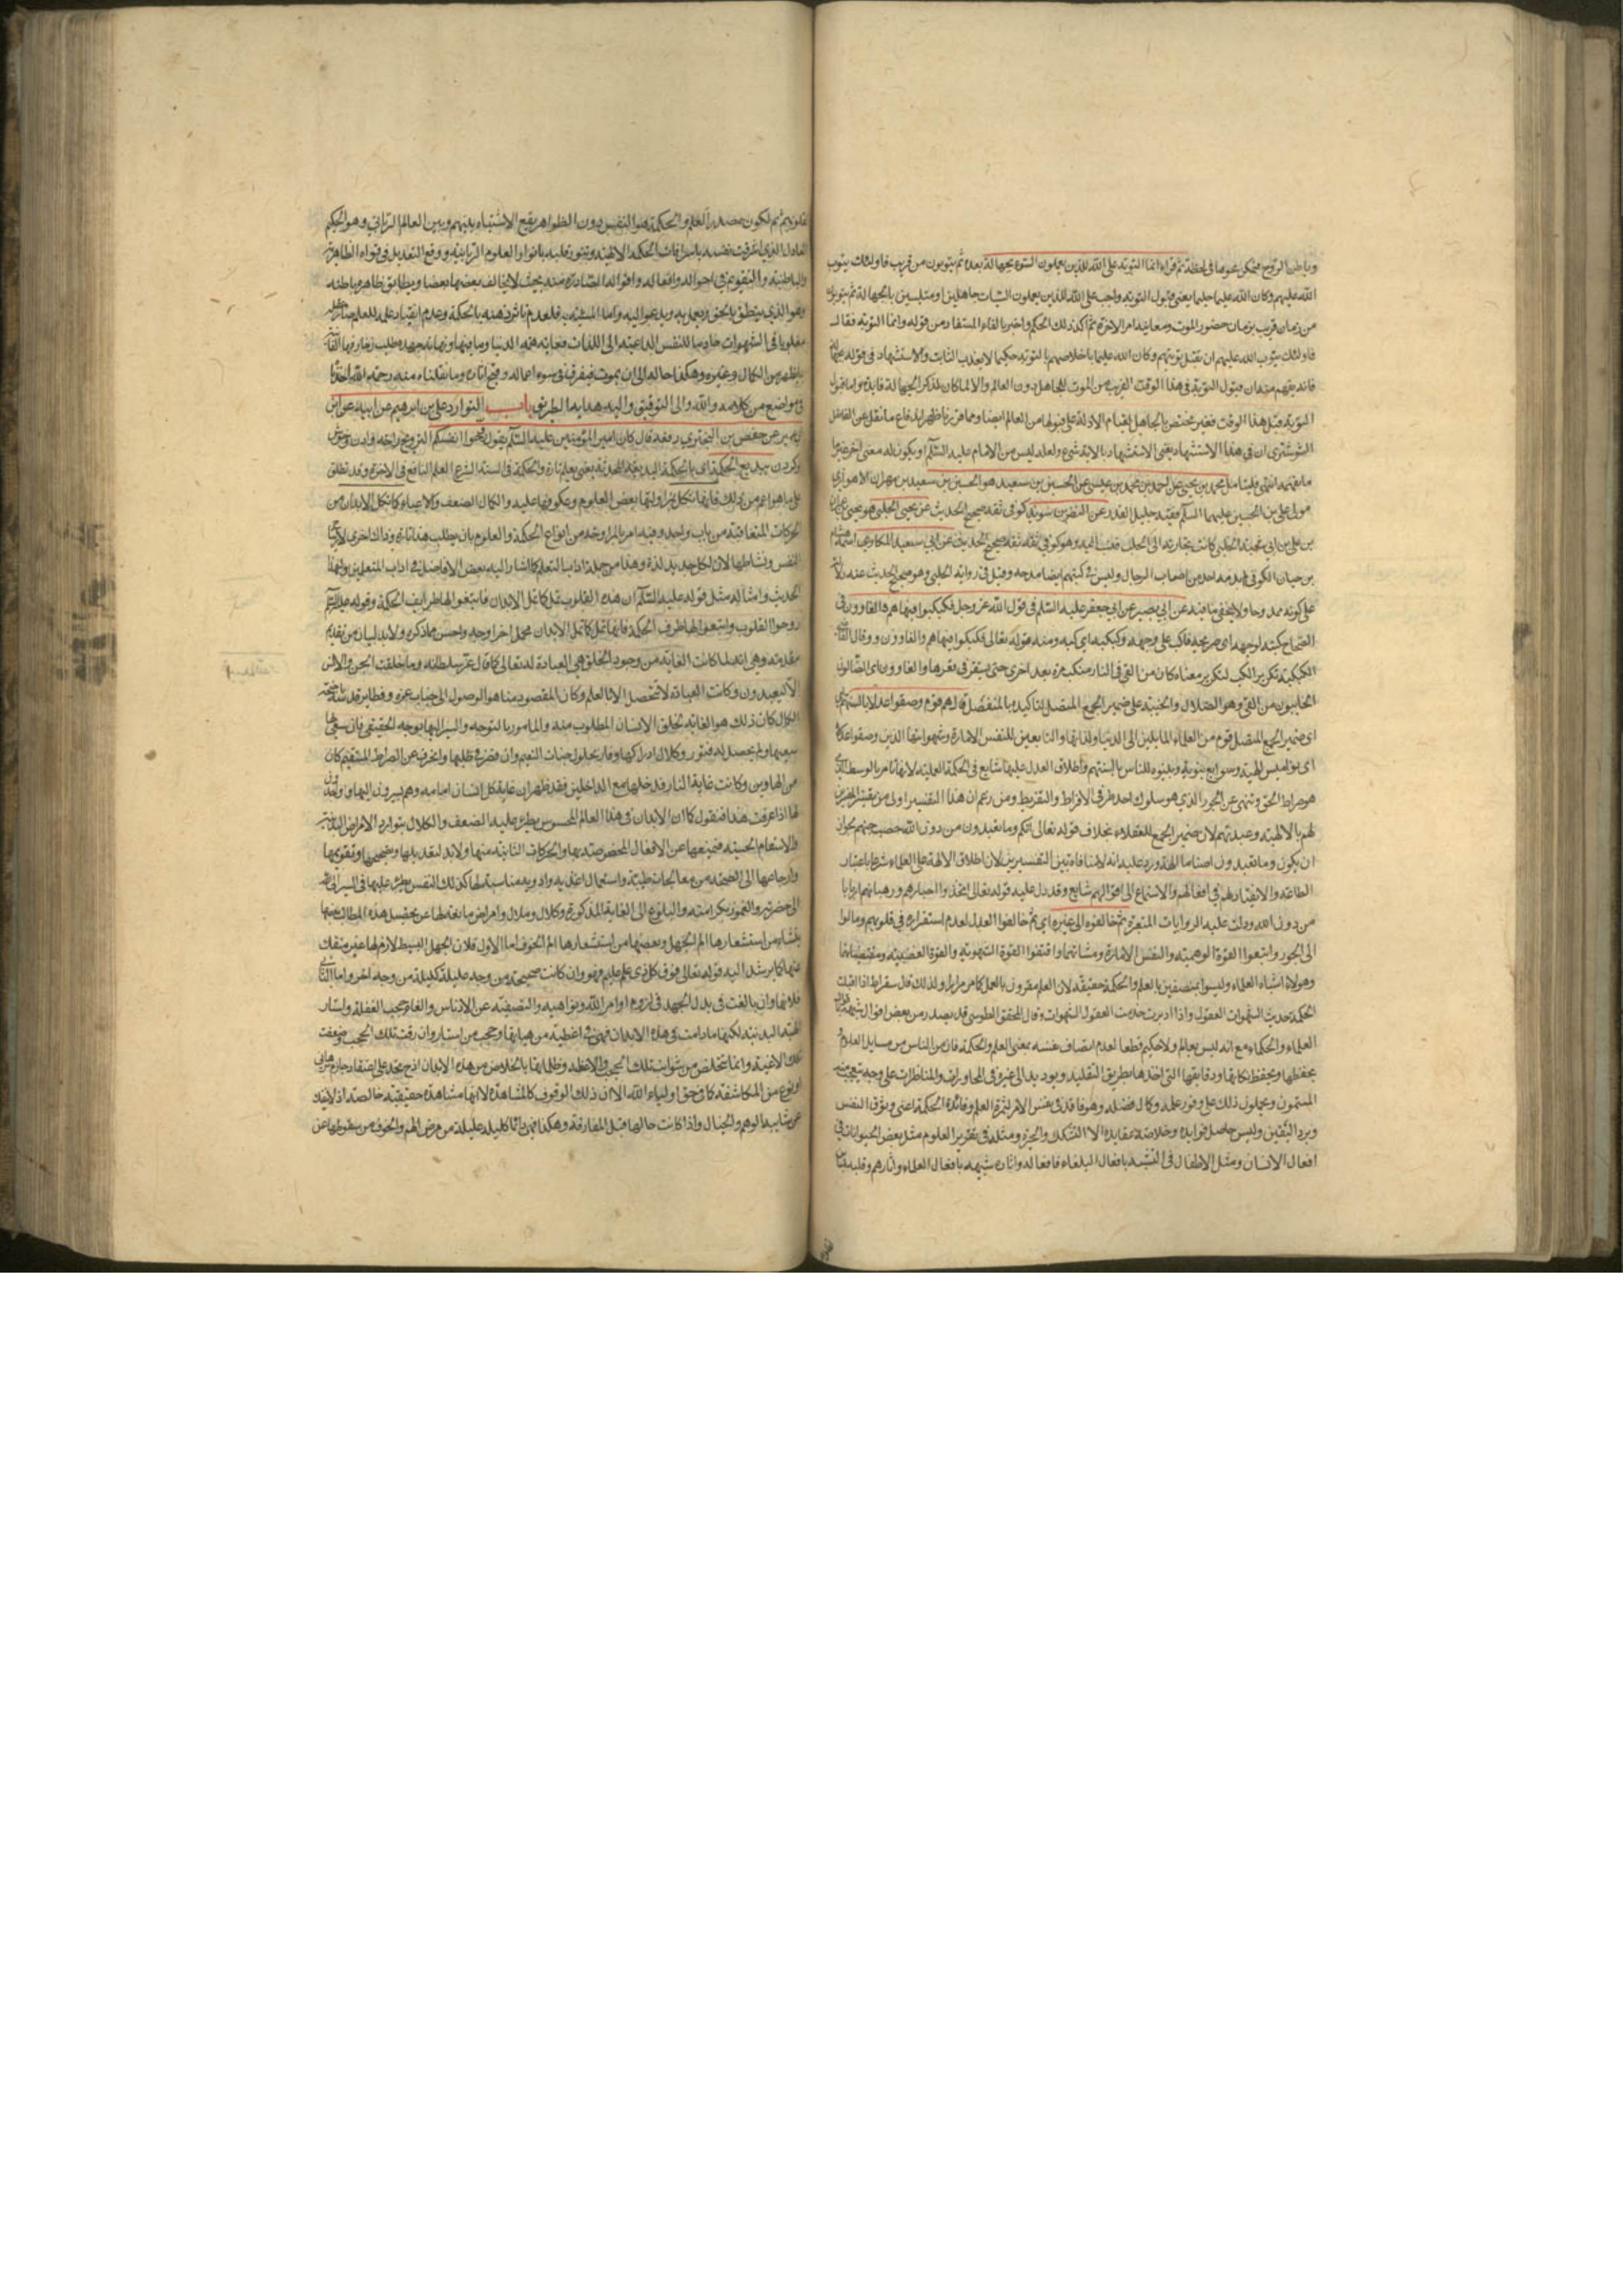 وباطن الروح ممكن عموما في لحظة ثم قراء انما التوبة على الله للذين يعملون السوء بجهالة بعده ثم يتوبون من قريب فاولئك يتوب
الله عليهم وكان الله عليما حكيما يعنى قبول التوبة واجب على الله للذين يعملون السيات جاهلين او متلبسين بالجهالة ثم يتوبون
من زمان قريب بزمان حضور الموت ومعاينة امر الاخرة ثم اكد ذلك الحكم واخبر بالفاء المستفاد من قوله وانما التوبة فقال
فاولئك يتوب الله عليهم ان يقبل توبتهم وكان الله عليما باخلاصهم بالتوبة حكيما لا يعذب التائب والاستشهاد في قوله
فانه يفهم منه ان قبول التوبة في هذا الوقت القريب من الموت للجاهل دون العالم والا لما كان لذكر الجهالة فايدة واما قبول
التوبة قبل هذا الوقت فغير مختص بالجاهل لقيام الادلة على قبولها من العالم ايضا ومما قررنا ظهر اندفاع ما نقل عن الفاضل
الشوشتري ان في هذا الاستشهاد يعنى الاستشهاد بالاية شيء ولعله ليس من الامام عليه السلام او يكون له معنى اخر غير
ما نفهمه انتهى محمد بن يحيى عن احمد بن محمد بن عيسى عن الحسين بن سعيد هو الحسين بن سعيد بن مهران الاهوازي
مولى على بن الحسين عليهما السلام ثقة جليل القدر عن النضر بن سويد كوفي ثقة صحيح الحديث عن يحيى الحلبي هو يحيى بن عمران
بن على بن ابي شعبة الحلبي كانت تجارته الى الحلب فنسب اليه وهو كوفي ثقة ثقة صحيح الحديث عن ابي سعيد المكاري اسمه هاشم
بن حيان الكوفي لم يمدحه احد من اصحاب الرجال وليس في كتبهم ايضا مدحه وقيل في رواية الحلبي وهو صحيح الحديث عنه دلالة
على كونه ممدوحا ولا يخفى ما فيه عن ابي بصير عن ابي جعفر عليه السلم في قول الله عز وجل فكبكبوا فيها هم والغاوون في
الصحاح كبه لوجهه اى صرعه فاكب على وجهه وكبكبه اى كبه ومنه قوله تعالى فكبكبوا فيها هم والغاوون وقال
الكبكبة تكرير الكب لتكرير معناه كان من القى في النار ينكب مرة بعد اخرى حتى يستقر في قعرها والغاوون اى الضالون
الخايبون من الغي وهو الضلال والخيبة على ضمير الجمع المتصل لتاكيده بالمنفصل قال هم قوم وصفوا عدلا بالسنتهم
اى ضمير الجمع المتصل قوم من العلماء المايلين الى الدنيا ولذاتها والتابعين للنفس الامارة وشهواتها الذين وصفوا عدلا
اى نواميس الهية وشرايع نبوية وبينوه للناس بالسنتهم واطلاق العدل عليها شايع في الحكمة العملية لانها تامر بالوسط الذي
هو صراط الحق وتنهى عن الجور الذي هو سلوك احد طرفي الافراط والتفريط ومن زعم ان هذا التفسير اولى من تفسير المفسرين
لهم بالالهة وعبدتهم لان ضمير الجمع للعقلاء بخلاف قوله تعالى انكم وما تعبدون من دون الله حصب جهنم لجواز
ان يكون وما تعبدون اصناما الهة ورد عليه انه لا منافاة بين التفسيرين لان اطلاق الالهة على العلماء شرعا باعتبار
الطاعة والانقياد لهم في افعالهم والاستماع الى اقوالهم شايع وقد دل عليه قوله تعالى اتخذوا احبارهم ورهبانهم اربابا
من دون الله ودلت عليه الروايات المتعبرة ثم خالفوه الى غيره اى ثم خالفوا العدل لعدم استقراره في قلوبهم ومالوا
الى الجور واتبعوا القوة الوهمية والنفس الامارة ومشاتهما واقتفوا القوة الشهوية والقوة الغضبية ومقتضياتهما
وهولاء اشباه العلماء وليسوا بمتصفين بالعلم والحكمة حقيقة لان العلم مقرون بالعمل كما مر مرارا ولذلك قال سقراط اذا اقبلت
الحكمة خدمت الشهوات العقول واذا ادبرت خدمت العقول الشهوات وقال المحقق الطوسي قد يصدر من بعض اقوال شبيهة
العلماء والحكماء مع انه ليس بعالم ولا حكيم قطعا لعدم اتصاف نفسه بمعنى العلم والحكمة فان من الناس من مسايل العلوم
يحفظها ويحفظ نكاتها ودقايقها التي اخذها بطريق التقليد ويوديها الى غيره في المحاورات والمناظرات على وجه يتعجب منه
المستمعون ويحملون ذلك على وفور علمه وكمال فضله وهو فاقد في نفس الامر لثمرة العلم وفائدة الحكمة اعنى وثوق النفس
وبرد اليقين وليس حاصل فوايده وخلاصة عقايده الا التشكك والحيرة ومثله في تقرير العلوم مثل بعض الحيوانات في
افعال الانسان ومثل الاطفال في التشبه بافعال البلغاء فافعاله واثاره شبيهة بافعال العلماء واثارهم وقلبه
قلوبهم ثم لكون مصدر العلم والحكمة هو النفس دون الظواهر يقع الاشتباه بينهم وبين العالم الرباني وهو الحكيم
العادل الذي اشرقت نفسه باشراقات الحكمة الالهية وتنور قلبه بانوار العلوم الربانية ووقع التعديل في قواه الظاهرة
والباطنة والتقويم في احواله وافعاله واقواله الصادرة منه بحيث لا يخالف بعضها بعضا ويطابق ظاهره باطنه
وهو الذي ينطق بالحق ويعمل به ويدعوا اليه واما المشبه به فلعدم تاثر ذهنه بالحكمة وعدم انقياد عمله للعلم صار
مغلوبا في الشهوات خادما للنفس الداعية الى اللذات فغاية همه الدنيا وما فيها ونهاية جهده طلب زخارفها
بما يظهر من الكمال وغيره وهكذا حاله الى ان يموت فيغرق في سوء اعماله وقبح اثاره وما نقلناه منه رحمه الله اخذنا
في مواضع من كلامه والله ولى التوفيق واليه هداية الطريق باب النوادر على بن ابراهيم عن ابيه عن ابن
ابي عمير عن حفص بن البختري رفعه قال كان امير المؤمنين عليه السلم يقول روحوا انفسكم
ببديع الحكمة اى بالحكمة البديعة والحكمة في لسان الشرع العلم النافع في الاخرة وقد تطلق
على ما هو اعم من ذلك فانها تكل بمزاولتها بعض العلوم وعكوفها عليه والكلال الضعف والاعياء كما تكل الابدان من
الحركات المتعاقبة من باب واحد وفيه امر بالمراوحة من انواع الحكمة والعلوم بان يطلب هذا تارة وذاك اخرى
النفس ونشاطها لان لكل جديد لذة وهذا من جملة اداب التعلم كما اشار اليه بعض الافاضل في اداب المتعلمين
الحديث وامثاله مثل قوله عليه السلام ان هذه القلوب تمل كما تمل الابدان فابتغوا لها طرايف الحكمة وقوله عليه السلم
روحوا القلوب وابتغوا لها طرف الحكمة فانها تمل كما تمل الابدان محمل اخر اوجه واحسن مما ذكر ولابد لبيانه من تقديم
مقدمة وهى انه لما كانت الغاية من وجود الخلق هى العبادة له تعالى كما قال عز سلطانه وما خلقت الجن والانس
الا ليعبدون وكانت العبادة لا تحصل الا بالعلم وكان المقصود منها هو الوصول الى جناب عزه
الكمال كان ذلك هو الغاية لخلق الانسان المطلوب منه والمامور بالتوجه والسير اليها بوجه الحقيقي فان سعى لها
سعيها ولم يحصل له فتور وكلال ادركها وفاز بحلول جنات النعيم وان قصر في طلبها وانحرف عن الصراط المستقيم كان
من الهاوين وكانت غاية النار فدخلها مع الداخلين فقد ظهر ان غاية كل انسان امامه وهم يسيرون اليها
اذا عرفت هذا فنقول كما ان الابدان في هذا العالم المحسوس يطرء عليه الضعف والكلال بتوارد الامراض البدنية
والاسقام الحسية فتمنعها عن الافعال المخصوصة بها والحركات الثابتة منها ولابد لتعديلها وتصحيحها وتقويتها
وارجاعها الى الصحة من معالجات طبية واستعمال اغذية وادوية مناسبة لها كذلك النفس يطرء عليها في السير الى الله
الى حضرته والفوز بكرامته والبلوغ الى الغاية المذكورة وكلال وملال وامراض مانعة لها عن تحصيل هذه المطالب بعضها
ينشاء من استشعارها الم الجهل وبعضها من استشعارها الم الخوف اما الاول فلان الجهل البسيط لازم لها غير منفك
عنها كما يرشد اليه قوله تعالى فوق كل ذى علم عليم فهو وان كانت صحيحة من وجه عليلة كليلة من وجه اخر واما الثاني
فلانها وان بالغت في بذل الجهد في لزوم اوامر الله ونواهيه والتصفية عن الادناس والغاء حجب الغفلة واستار
الهيئة البدنية لكنها ما دامت في هذه الابدان فهى في اغطية من هيئاتها وحجب من استار وان رقت تلك الحجب وضعفت
تلك الاغشية وانما تتخلص من شوائب تلك الحجب والاغطية وظلماتها بالخلاص من هذه الابدان
او نوع من المكاشفة كما في حق اولياء الله الا ان ذلك الوقوف كالمشاهدة لا انها مشاهدة حقيقية خالصة اذ لا ينفك
عن شايبة الوهم والخيال واذا كانت حالها قبل المفارقة وهكذا فهى دائما كليلة عليلة من مرض الهم والخوف من سقوطها عن